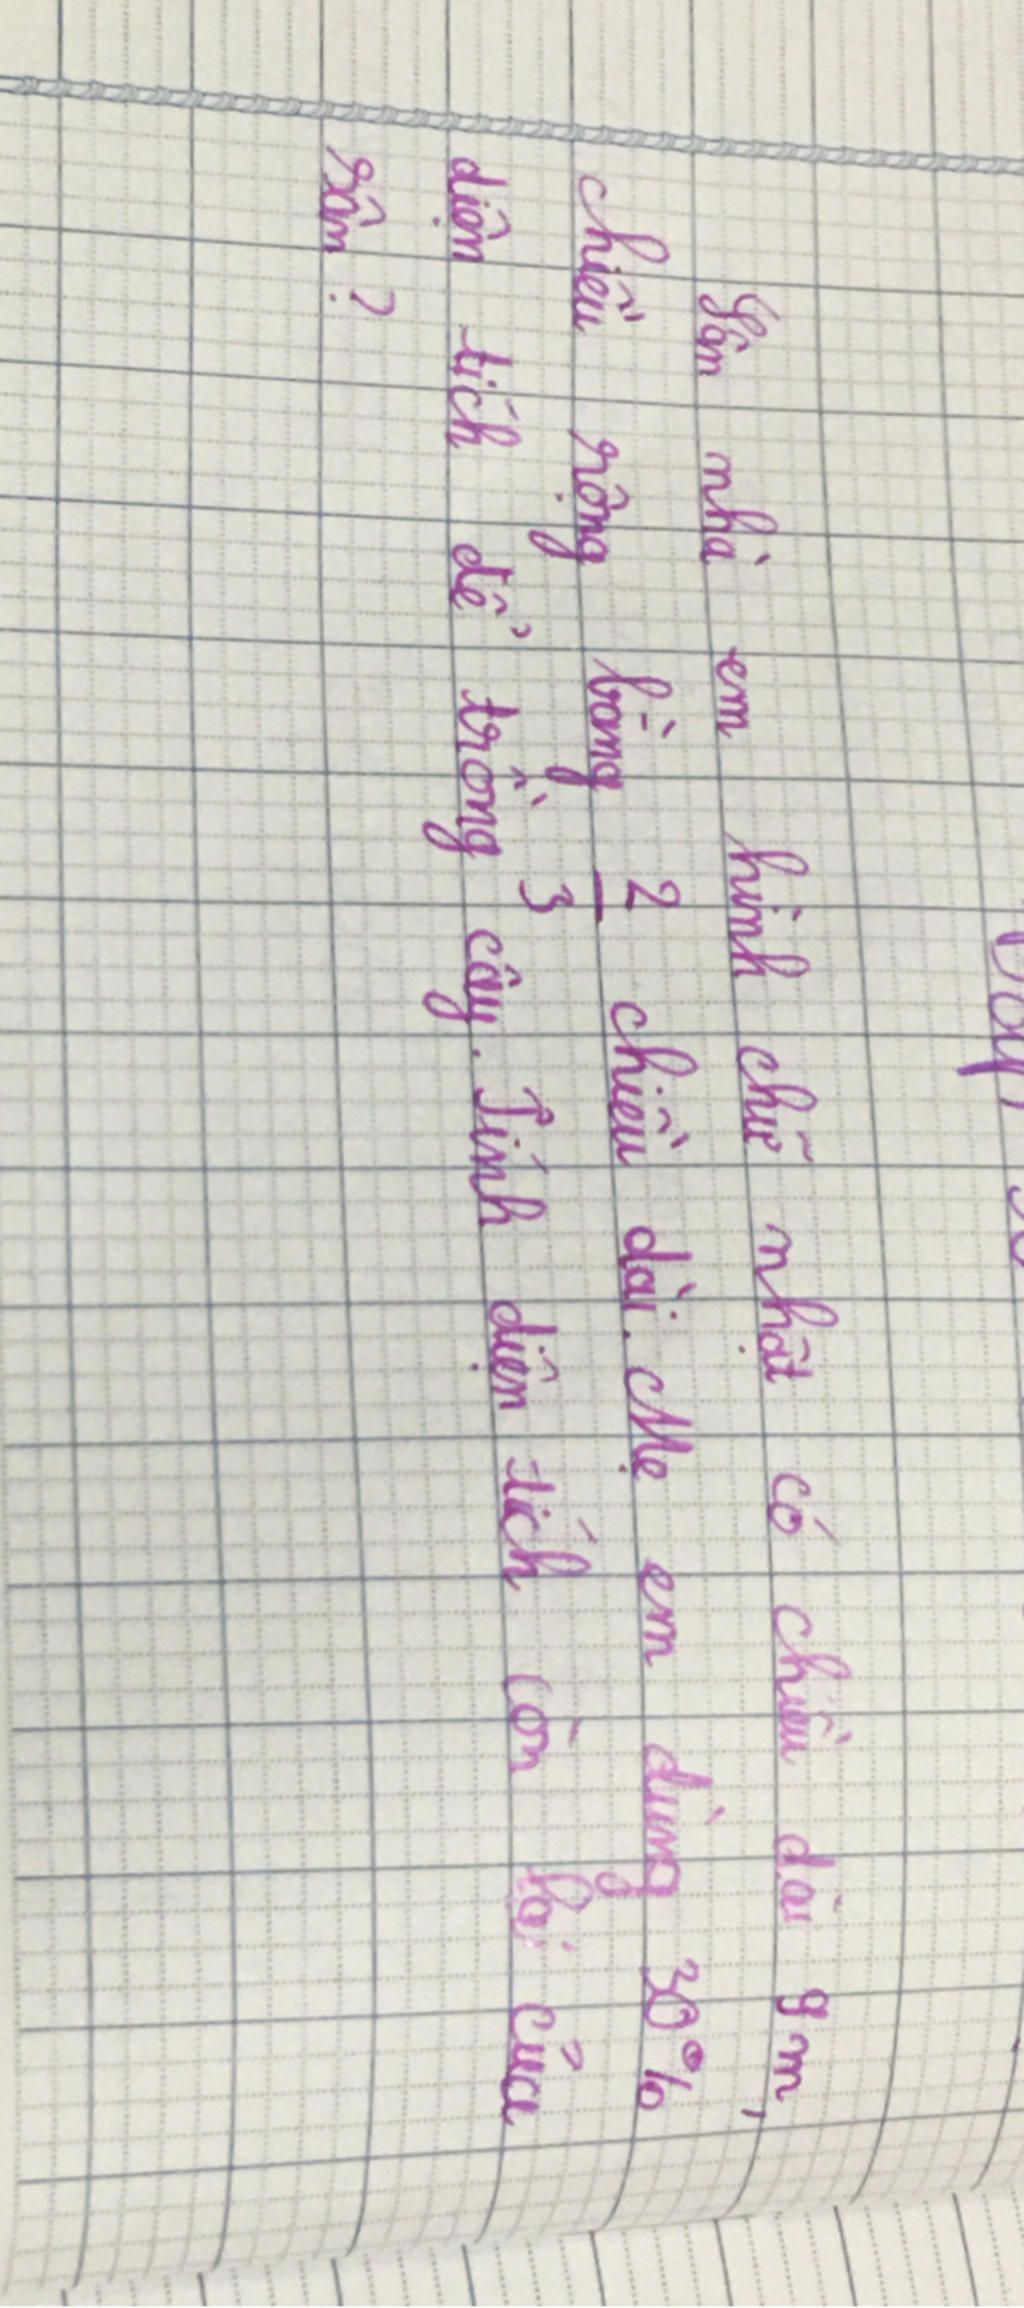 Sân nhà em hình chữ nhật có chiều dài 9m,
chiều rộng bằng 2/3 chiều dài. Mẹ em dùng 30%
diện tích để trồng cây. Tính diện tích còn lại của
sân ?